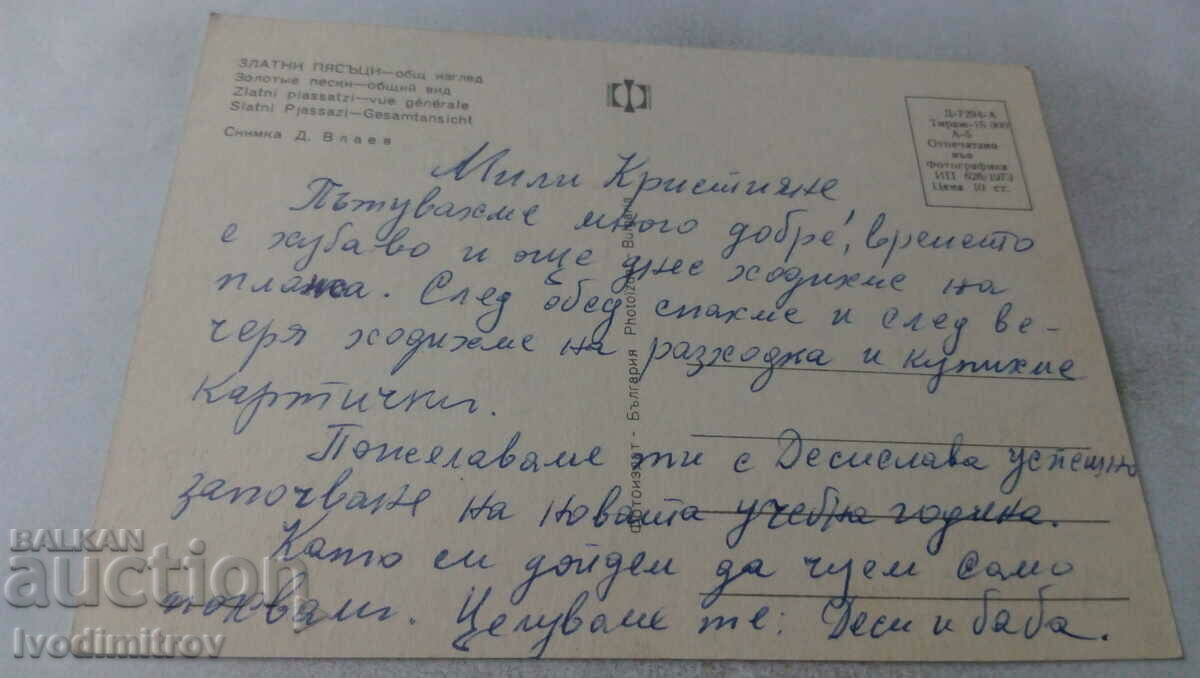 ЗЛАТНИ ПЯСЪЦИ—общ изглед
Золотые пески—общий вид
Zlatni piassatzi—vue générale
Slatni Pjassazi—Gesamtansicht
Снимка Д. Влаев
Д-7294-А
Тираж-15 000
А-5
Отпечатана
във
Фотографика
ИП 626/1973
Цена 10 ст.
Мили Кристияне
Пътувахме много добре, времето
е хубаво и още днес ходихме на
плажа. След обед спахме и след ве-
черя ходихме на разходка и купихме
картички.
Пожелаваме ти с Десислава успешно
започване на новата учебна година.
Като си дойдем да чуем само
похвали. Целуваме те: Деси и баба.
Фотоиздат - България Photoizdat - Bulgaria
BALKAN
auction
Ivodimitrov